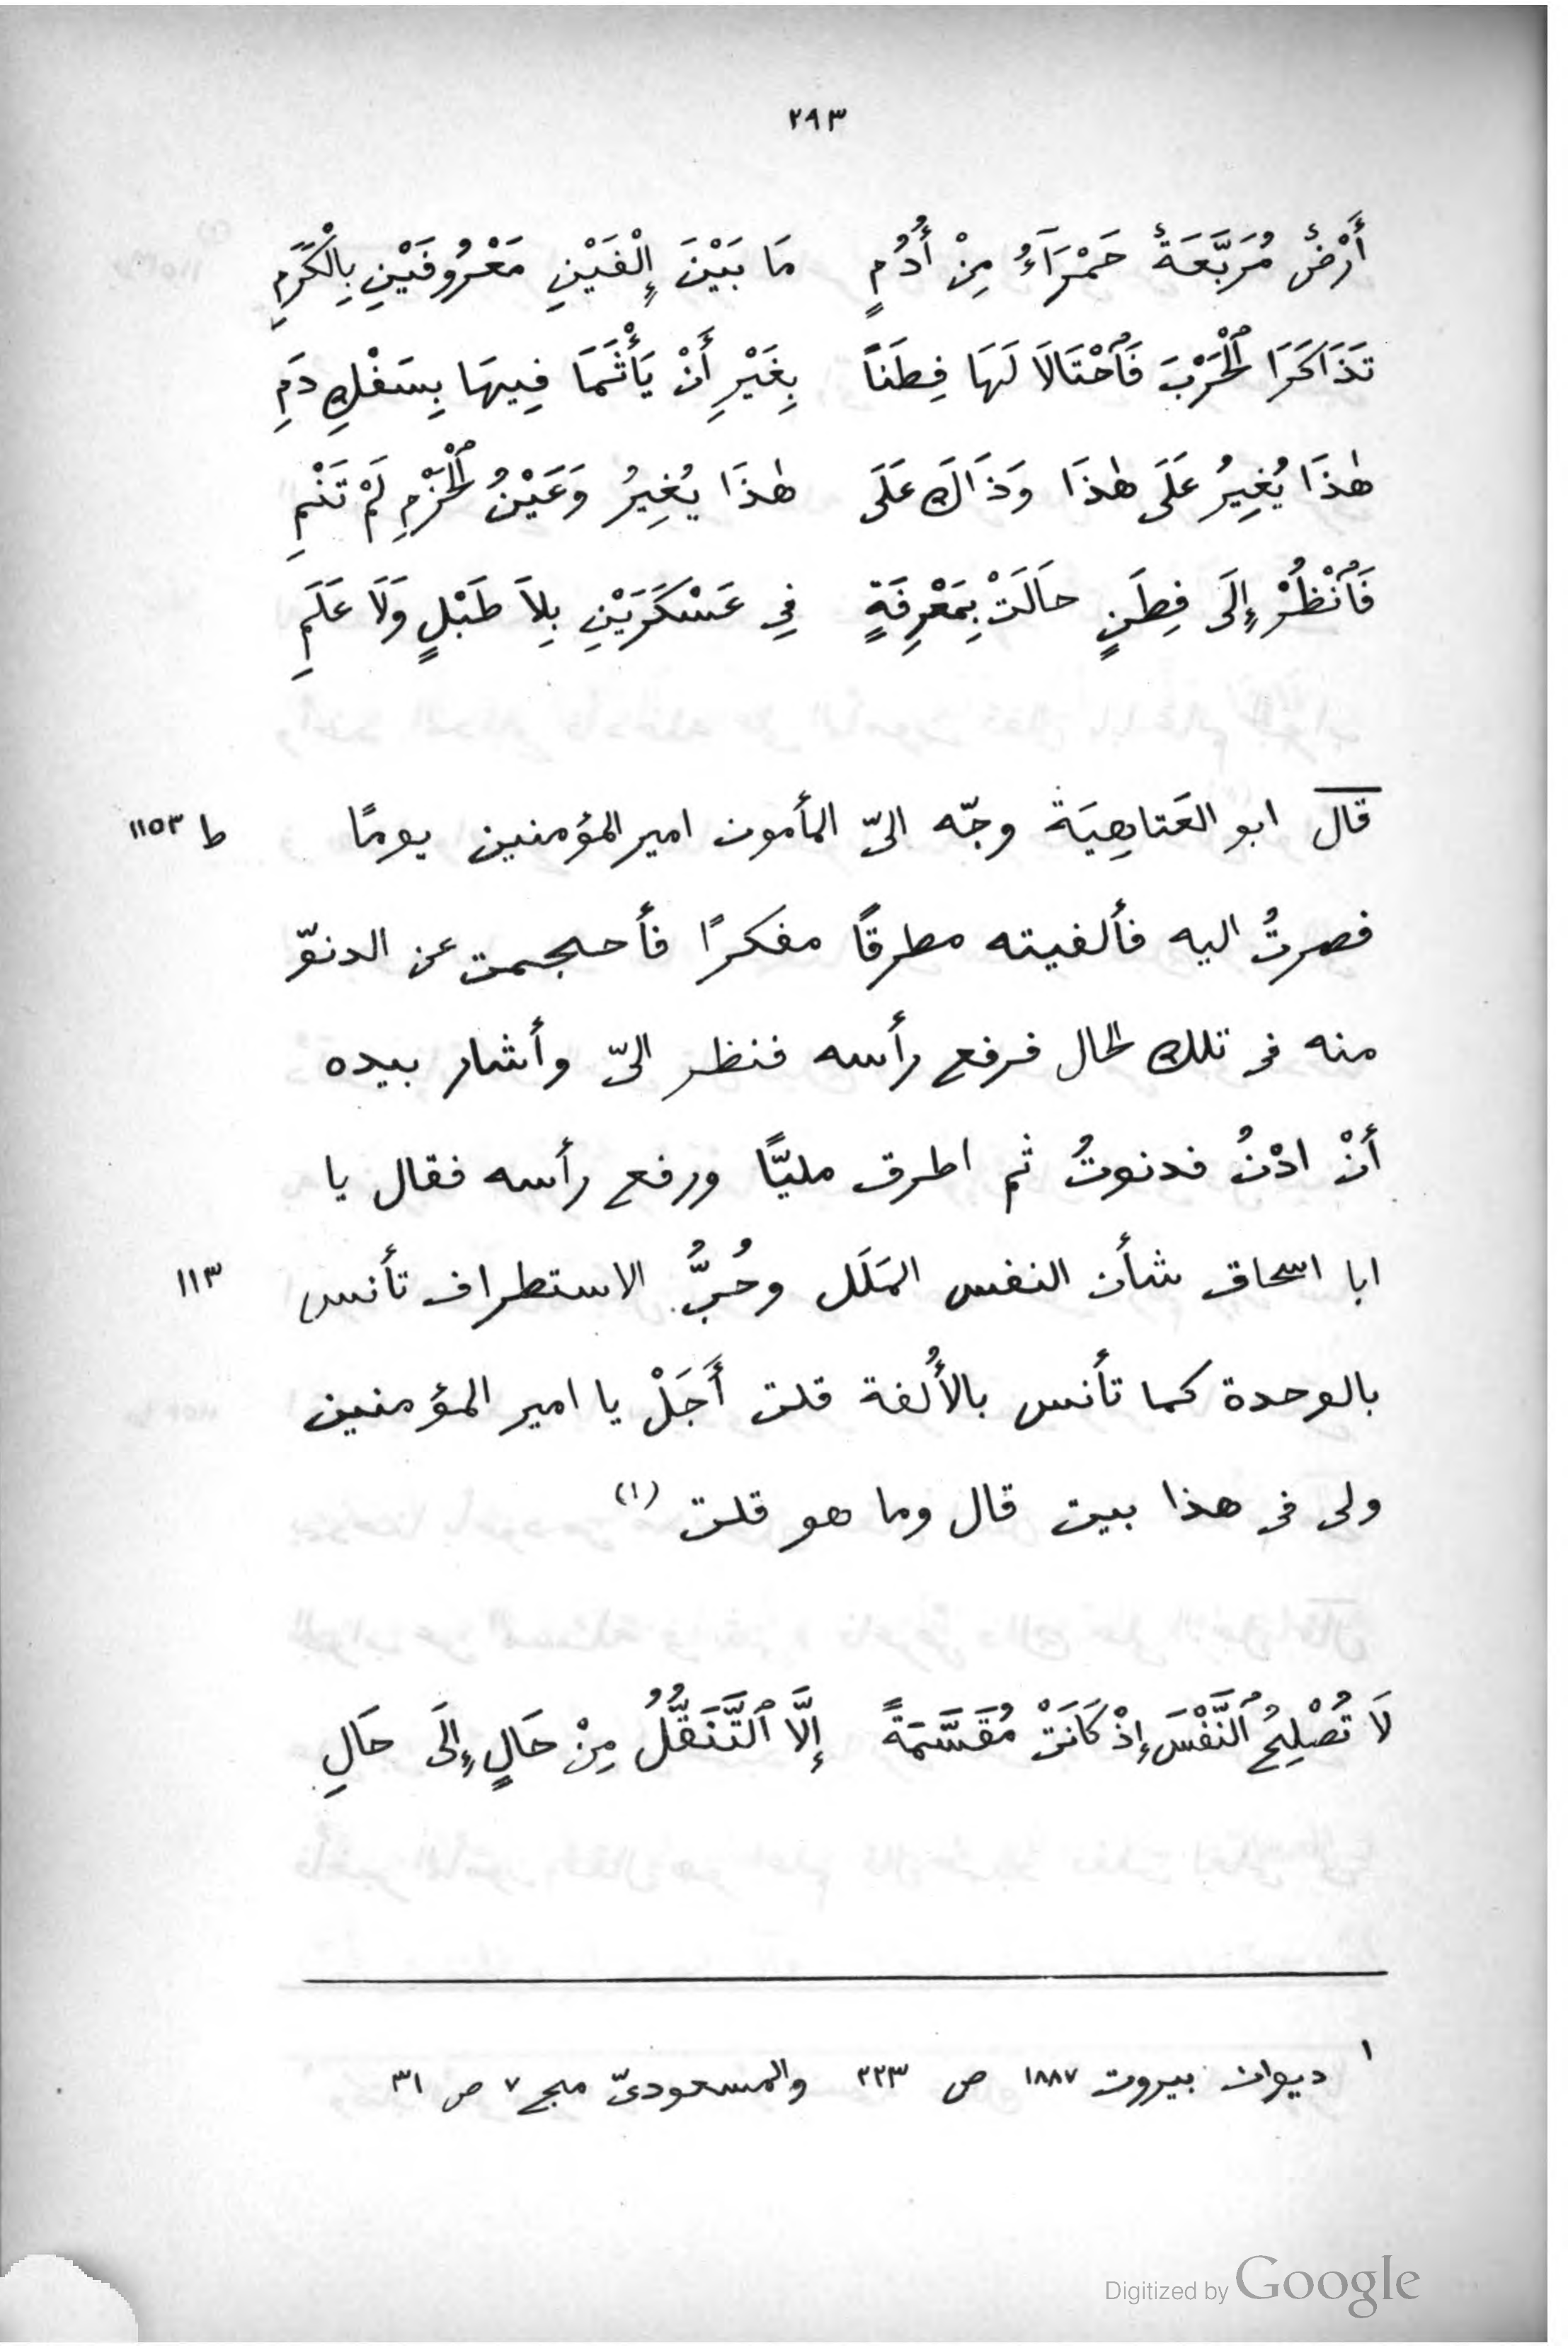 ٢٩٣
أَرْضٌ مُرَبَّعَةٌ حَمْرَآءُ مِنْ أُدُمٍ مَا بَيْنَ إِلْفَيْنِ مَعْرُوفَيْنِ بِالْكَرَمِ
تَذَاكَرَا ٱلْحَرْبَ فَٱحْتَالَا لَهَا فِطَنًا بِغَيْرِ أَنْ يَأْثَمَا فِيهَا بِسَفْكِ دَمِ
هٰذَا يُغِيرُ عَلَى هٰذَا وَذَاكَ عَلَى هٰذَا يُغِيرُ وَعَيْنُ ٱلْحَزْمِ لَمْ تَنَمِ
فَٱنْظُرْ إِلَى فِطَنٍ حَالَتْ بِمَعْرِفَةٍ فِي عَسْكَرَيْنِ بِلَا طَبْلٍ وَلَا عَلَمِ
قال ابو العَتاهِيَة وجّه الىّ المأمون امير المؤمنين يومًا ط ١١٥٣
فصرتُ اليه فألفيته مطرقًا مفكرًا فأحجمت عن الدنوّ
منه فى تلك الحال فرفع رأسه فنظر الىّ وأشار بيده
أنْ ادْنُ فدنوتُ ثم اطرق مليًّا ورفع رأسه فقال يا
ابا اسحاق شأن النفس المَلَل وحُبُّ الاستطراف تأنس ١١٣
بالوحدة كما تأنس بالأُلفة قلت أَجَلْ يا امير المؤمنين
ولى فى هذا بيت قال وما هو قلت (١)
لَا تُصْلِحُ ٱلنَّفْسَ إِذْ كَانَتْ مُقَسَّمَةً إِلَّا ٱلتَّنَقُّلُ مِنْ حَالٍ إِلَى حَالِ
١ ديوان بيروت ١٨٨٧ ص ٢٢٣ والمسعودىّ مج ٧ ص ٣١
Digitized by Google